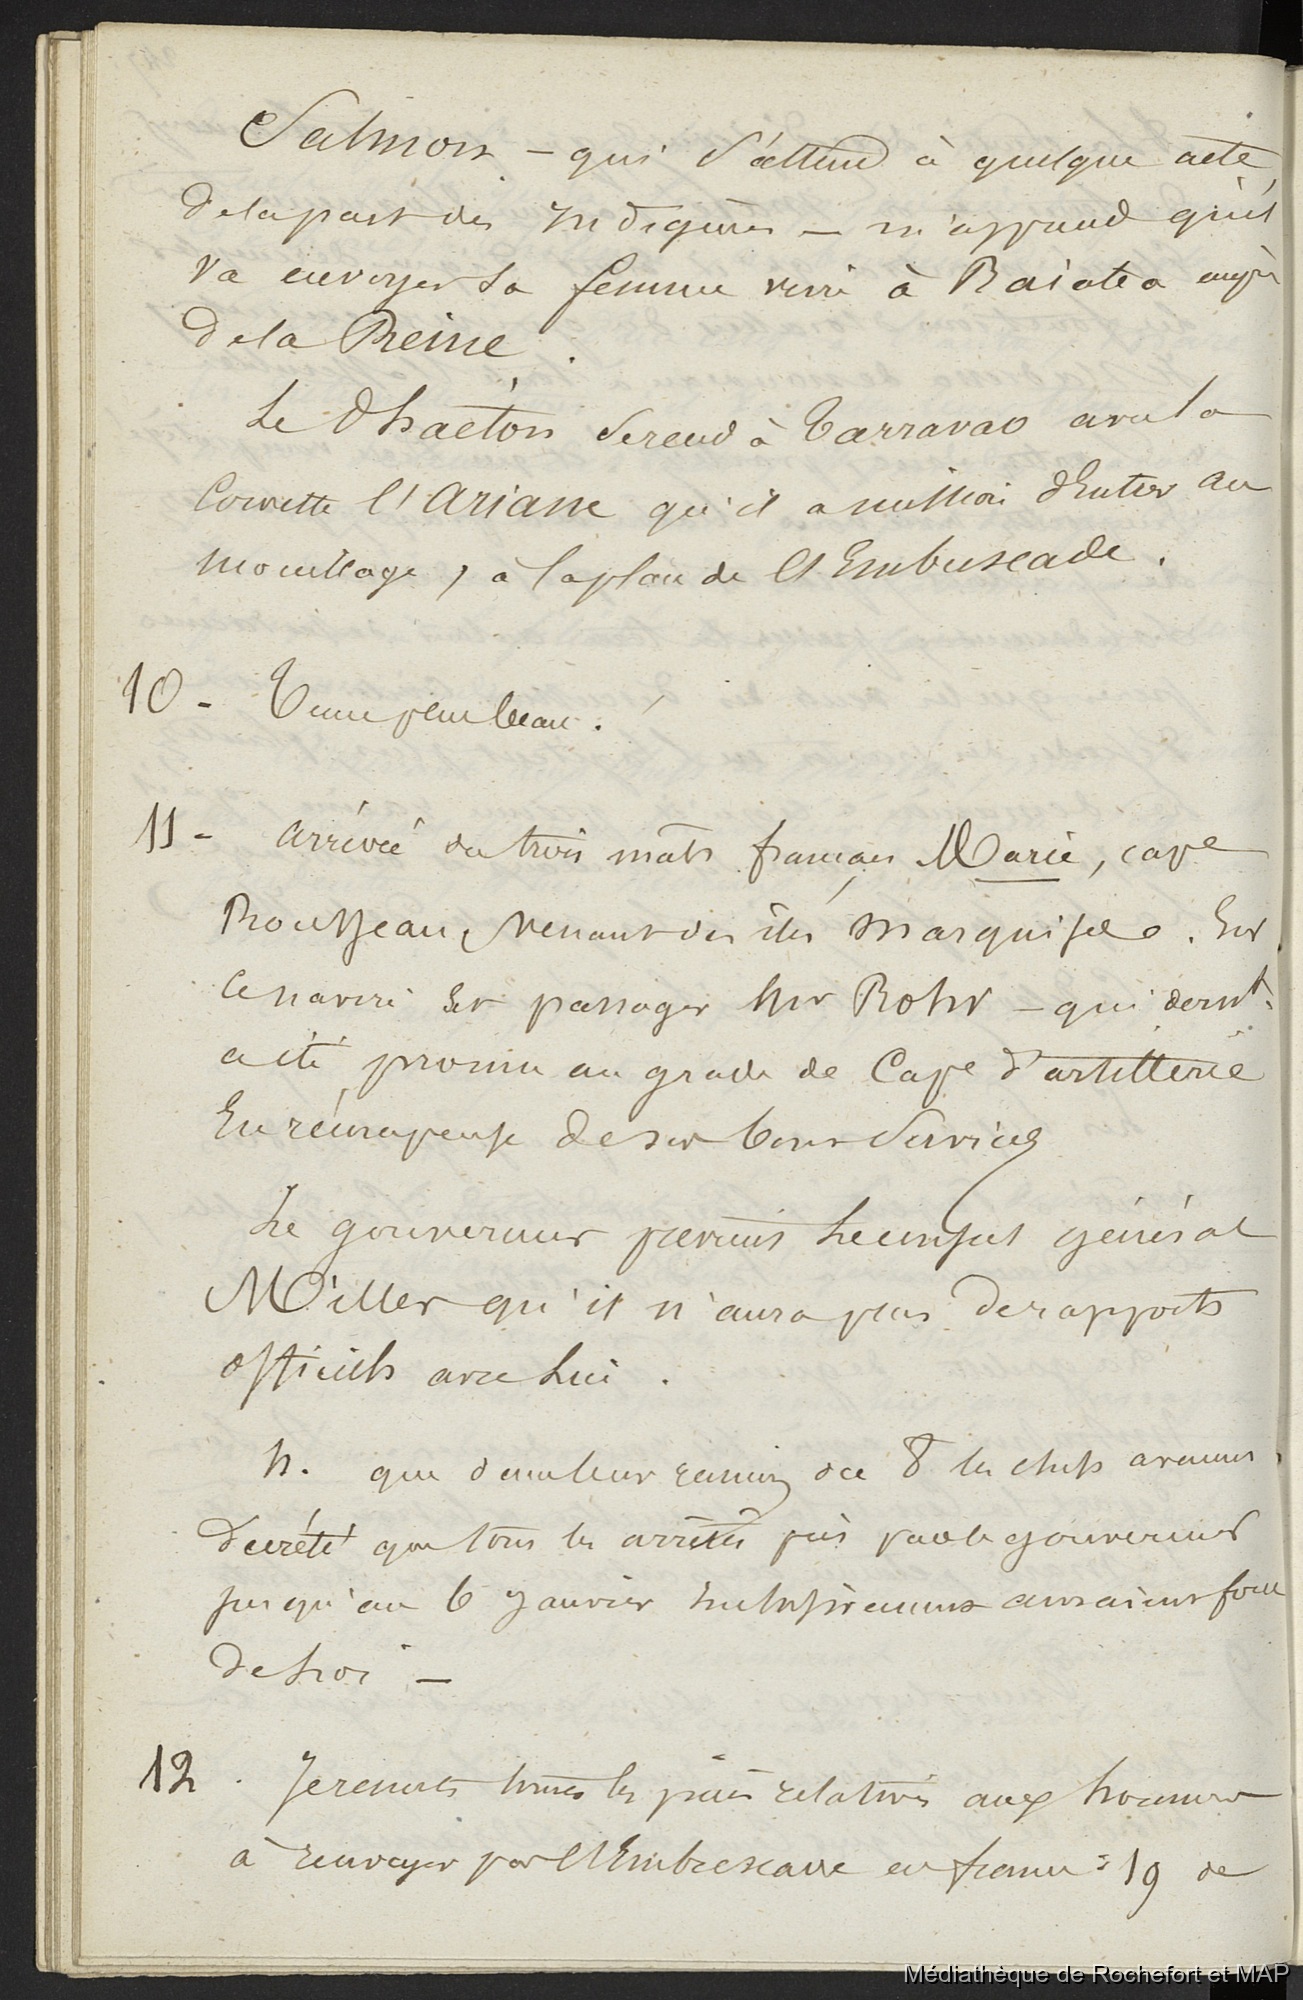 Salmon – qui s'attend à quelque acte
de la part des Indigènes – m'apprend qu'il
va envoyer sa femme vivre à Raiatea auprès
de la Reine.
Le Phaéton se rend à Tarravao avec la
Corvette l'Ariane qu'il a mission d'entrer au
mouillage, à la place de l'Embuscade.
10 - Temps plus beau.
11 - arrivée du trois mats français Marie, cape
Rousseau, venant des îles Marquises. Sur
ce navire est passager Mr Rohr – qui dernt
a été promu au grade de Cape d'artillerie
En récompense de ses bons services
Le gouverneur prévint le consul général
Miller qu'il n'aura plus de rapports
officiels avec lui.
N. que dans leur réunion du 8 les chefs avaient
décrété que tous les arrêtés pris par le gouverneur
jusqu'au 6 Janvier auraient force
de loi –
12. Je remets toutes les pièces relatives aux hommes
à renvoyer par l'Embuscade en france : 19 de
Médiathèque de Rochefort et MAP